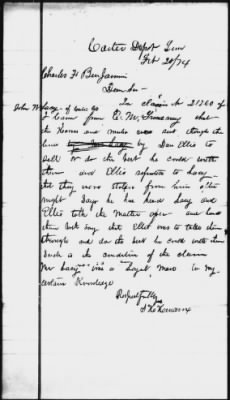 Carter Depot Tenn
Feb 20/74
Charles F Benjamin
Dear Sir -
In claim No 21760 of
John W Lacy of
I learn from E. M.
the Horses and mules was sent through the
lines by Ellis to
sell or do the best he could with
them and Ellis reported to Lacy
that they were stolen from him
night Says he has heard Lacy and
Ellis talk the matter over and
them both say that Ellis was to take them
through and do the best he could with them
Such is the condition of the claim
Mr Lacy was a loyal man to my
certain Knowledge
Respectfully